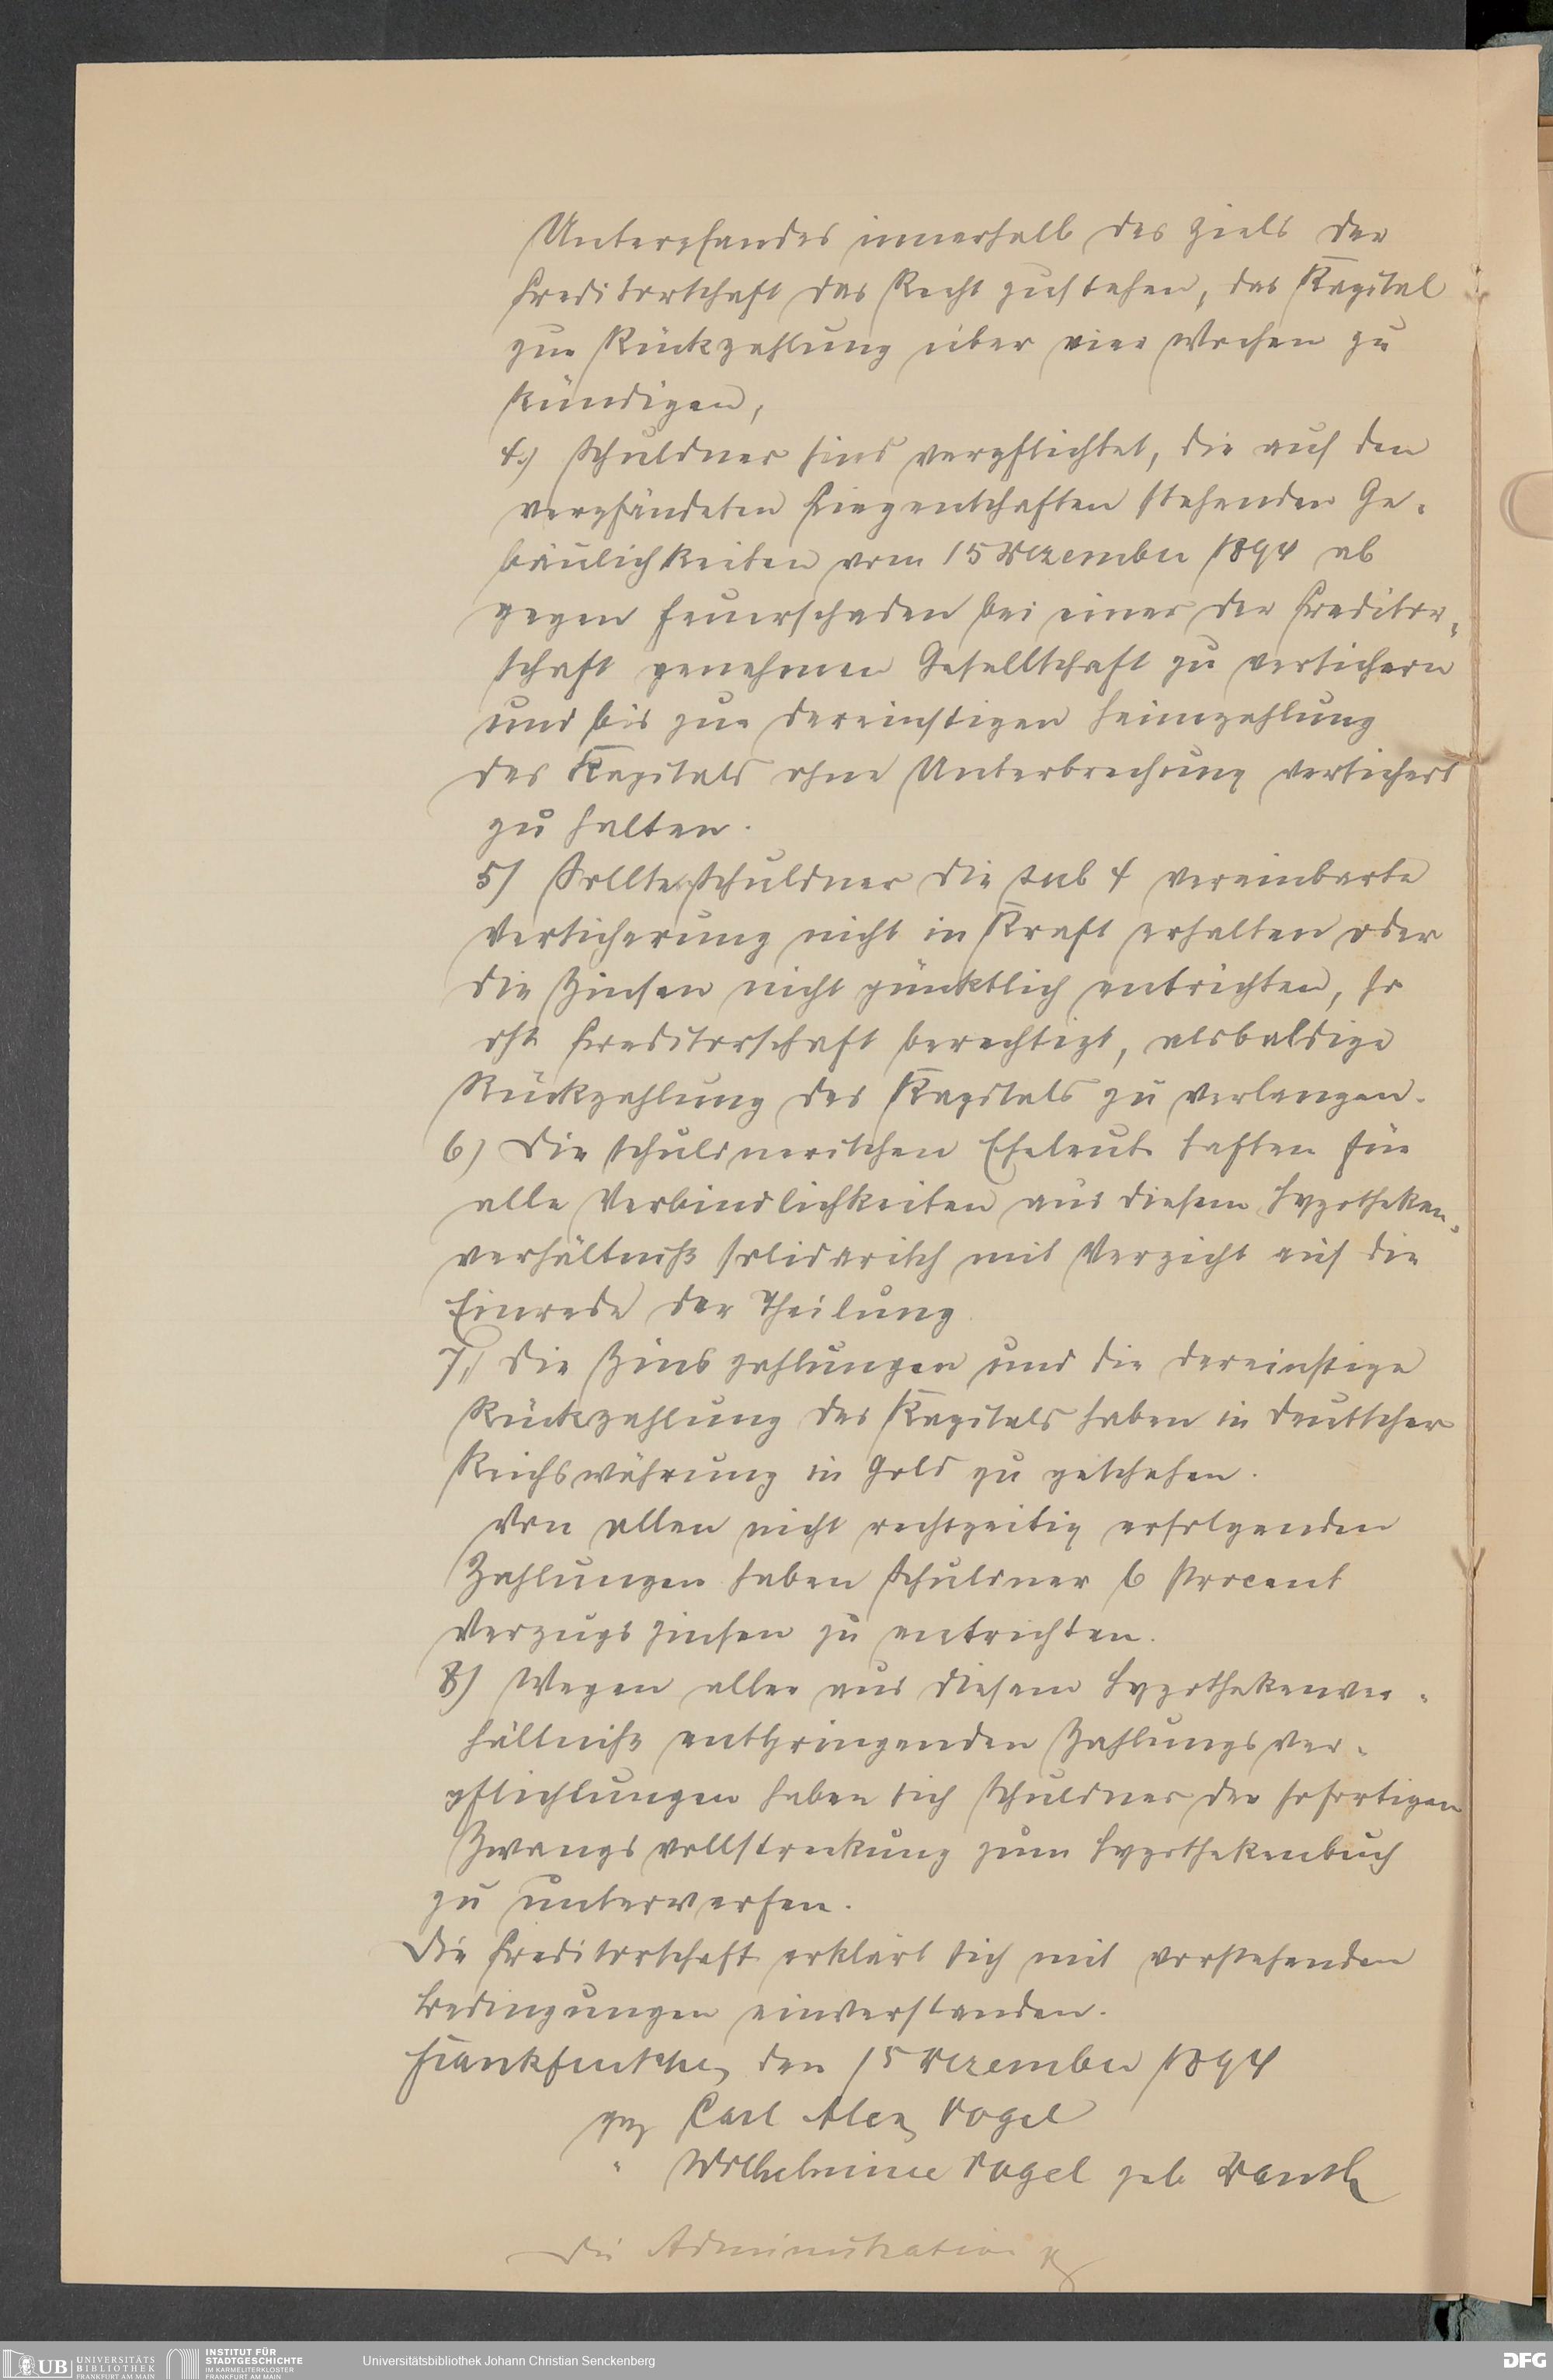 Unterpfandes innerhalb des Ziels der
Creditorschaft das Recht zustehen, das Kapital
zur Rückzahlung über vier Wochen zu
kündigen,
4.) Schuldner sind verpflichtet, die auf den
verpfändeten Liegenschaften stehenden Ge-
bäulichkeiten vom 15 Dezember 1894 ab
gegen Feuerschaden bei einer der Creditor-
schaft genehmen Gesellschaft zu versichern
und bis zur dereinstigen Heimzahlung
des Kapitals ohne Unterbrechung versichert
zu halten.
5) Sollten Schuldner die sub 4 vereinbarte
Versicherung nicht in Kraft erhalten oder
die Zinsen nicht pünktlich entrichten, so
ist Creditorschaft berechtigt, alsbaldige
Rückzahlung des Kapitals zu verlangen.
6) Die schuldnerischen Eheleute haften für
alle Verbindlichkeiten aus diesem Hypotheken-
verhältniß solidarisch mit Verzicht auf die
Einrede der Theilung
7,) Die Zinszahlungen und die dereinstige
Rückzahlung des Kapitals haben in deutscher
Reichswährung in Gold zu geschehen.
Von allen nicht rechtzeitig erfolgenden
Zahlungen haben Schuldner 6 Procent
Verzugszinsen zu entrichten.
8) Wegen aller aus diesem Hypothekenver-
hältniß entspringenden Zahlungsver-
pflichtungen haben sich Schuldner der sofortigen
Zwangsvollstreckung zum Hypothekenbuch
zu unterwerfen.
Die Creditorschaft erklärt sich mit vorstehenden
Bedingungen einverstanden.
den 15 Dezember 1894
gez Carl Alex Vogel
" Wilhelmine Vogel geb
Die Administration
UB UNIVERSITÄTS
BIBLIOTHEK
FRANKFURT AM MAIN
INSTITUT FÜR
STADTGESCHICHTE
IM KARMELITERKLOSTER
FRANKFURT AM MAIN
Universitätsbibliothek Johann Christian Senckenberg
DFG